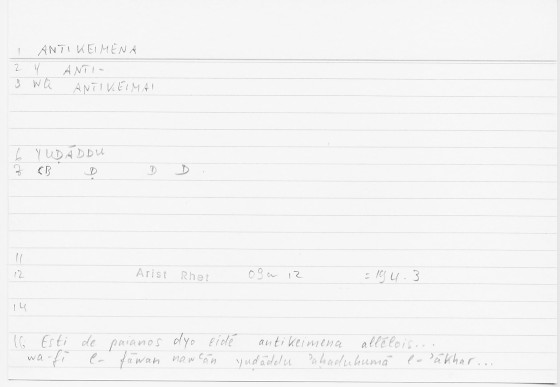 1 ANTIKEIMENA
2 Y ANTI-
3 WQ ANTIKEIMAI
6 YUḌĀDDU
7 CB Ḍ D D
11
12 Arist Rhet 09a 12 = 194.3
14
15 Esti de paianos dyo eidē antikeimena allēlois...
wa-fī l- fāwan nawʿān yuḍāddu ʾaḥaduhumā l-ʾākhar...